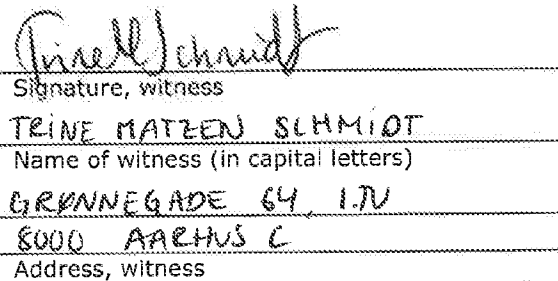 Trine M Schmidt
Signature, witness
TRINE MATZEN SCHMIDT
Name of witness (in capital letters)
GRØNNEGADE 64, 1.TV
8000 AARHUS C
Address, witness